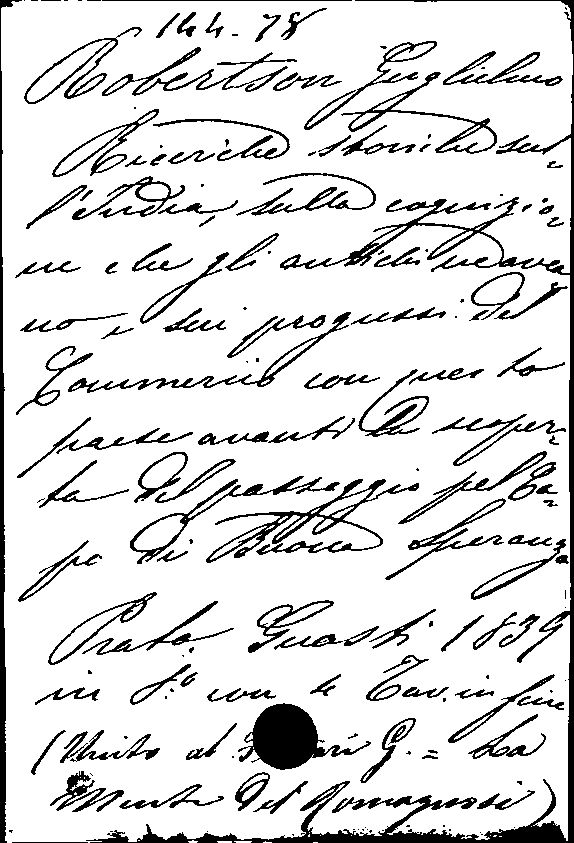 144. 78
Robertson Guglielmo
Ricerche storiche sul-
l'India, sulla cognizio-
ne che gli antichi ne avea
no, e sui progressi del
Commercio con questo
paese avanti la scoper-
ta del passaggio pel Ca-
po di Buona Speranza
Prato. Guasti 1839
in 8.° con 4 Tav. in fine
(Unito al G. = La
Mente del Romagnosi)